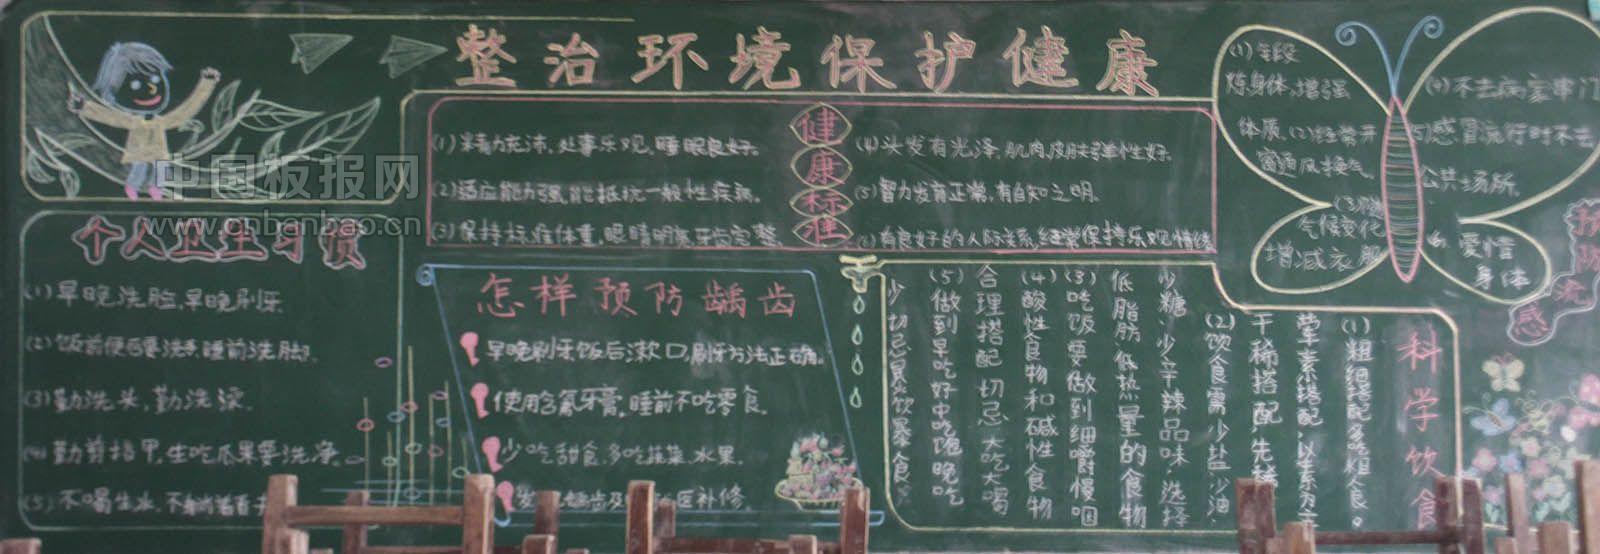 整治环境保护健康
中国板报网
www.cnbanbao.cn
个人卫生习惯
(1)早晚洗脸,早晚刷牙.
(2)饭前便后要洗手,睡前洗脚.
(3)勤洗头,勤洗澡.
(4)勤剪指甲,生吃瓜果要洗净.
(5)不喝生水,不
健康标准
(1)精力充沛,处事乐观,睡眠良好.
(2)适应能力强,能抵抗一般性疾病.
(3)保持标准体重,眼睛明亮,牙齿完整.
(4)头发有光泽,肌肉皮肤弹性好.
(5)智力发育正常,有自知之明.
(6)有良好的人际关系,经常保持乐观情绪
怎样预防龋齿
早晚刷牙饭后漱口,刷牙方法正确.
使用含氟牙膏,睡前不吃零食.
少吃甜食,多吃蔬菜,水果.
发现龋齿及 医补修.
科学饮食
(1)粗细搭配多吃粗食。
荤素搭配,以素为主
干稀搭配,先稀
(2)饮食需少盐、少油、
少糖、少辛辣品味选择
低脂肪低热量的食物
(3)吃饭要做到细嚼慢咽
(4)酸性食物和碱性食物
合理搭配切忌大吃大喝
(5)做到早吃好中吃饱晚吃
少,切忌暴饮暴食。
预防流感
(1)锻
炼身体,增强
体质.(2)经常开
窗通风换气.
(3)随
气候变化
增减衣服
(4)不去病家串门
(5)感冒流行时不去
公共场所.
爱惜
身体